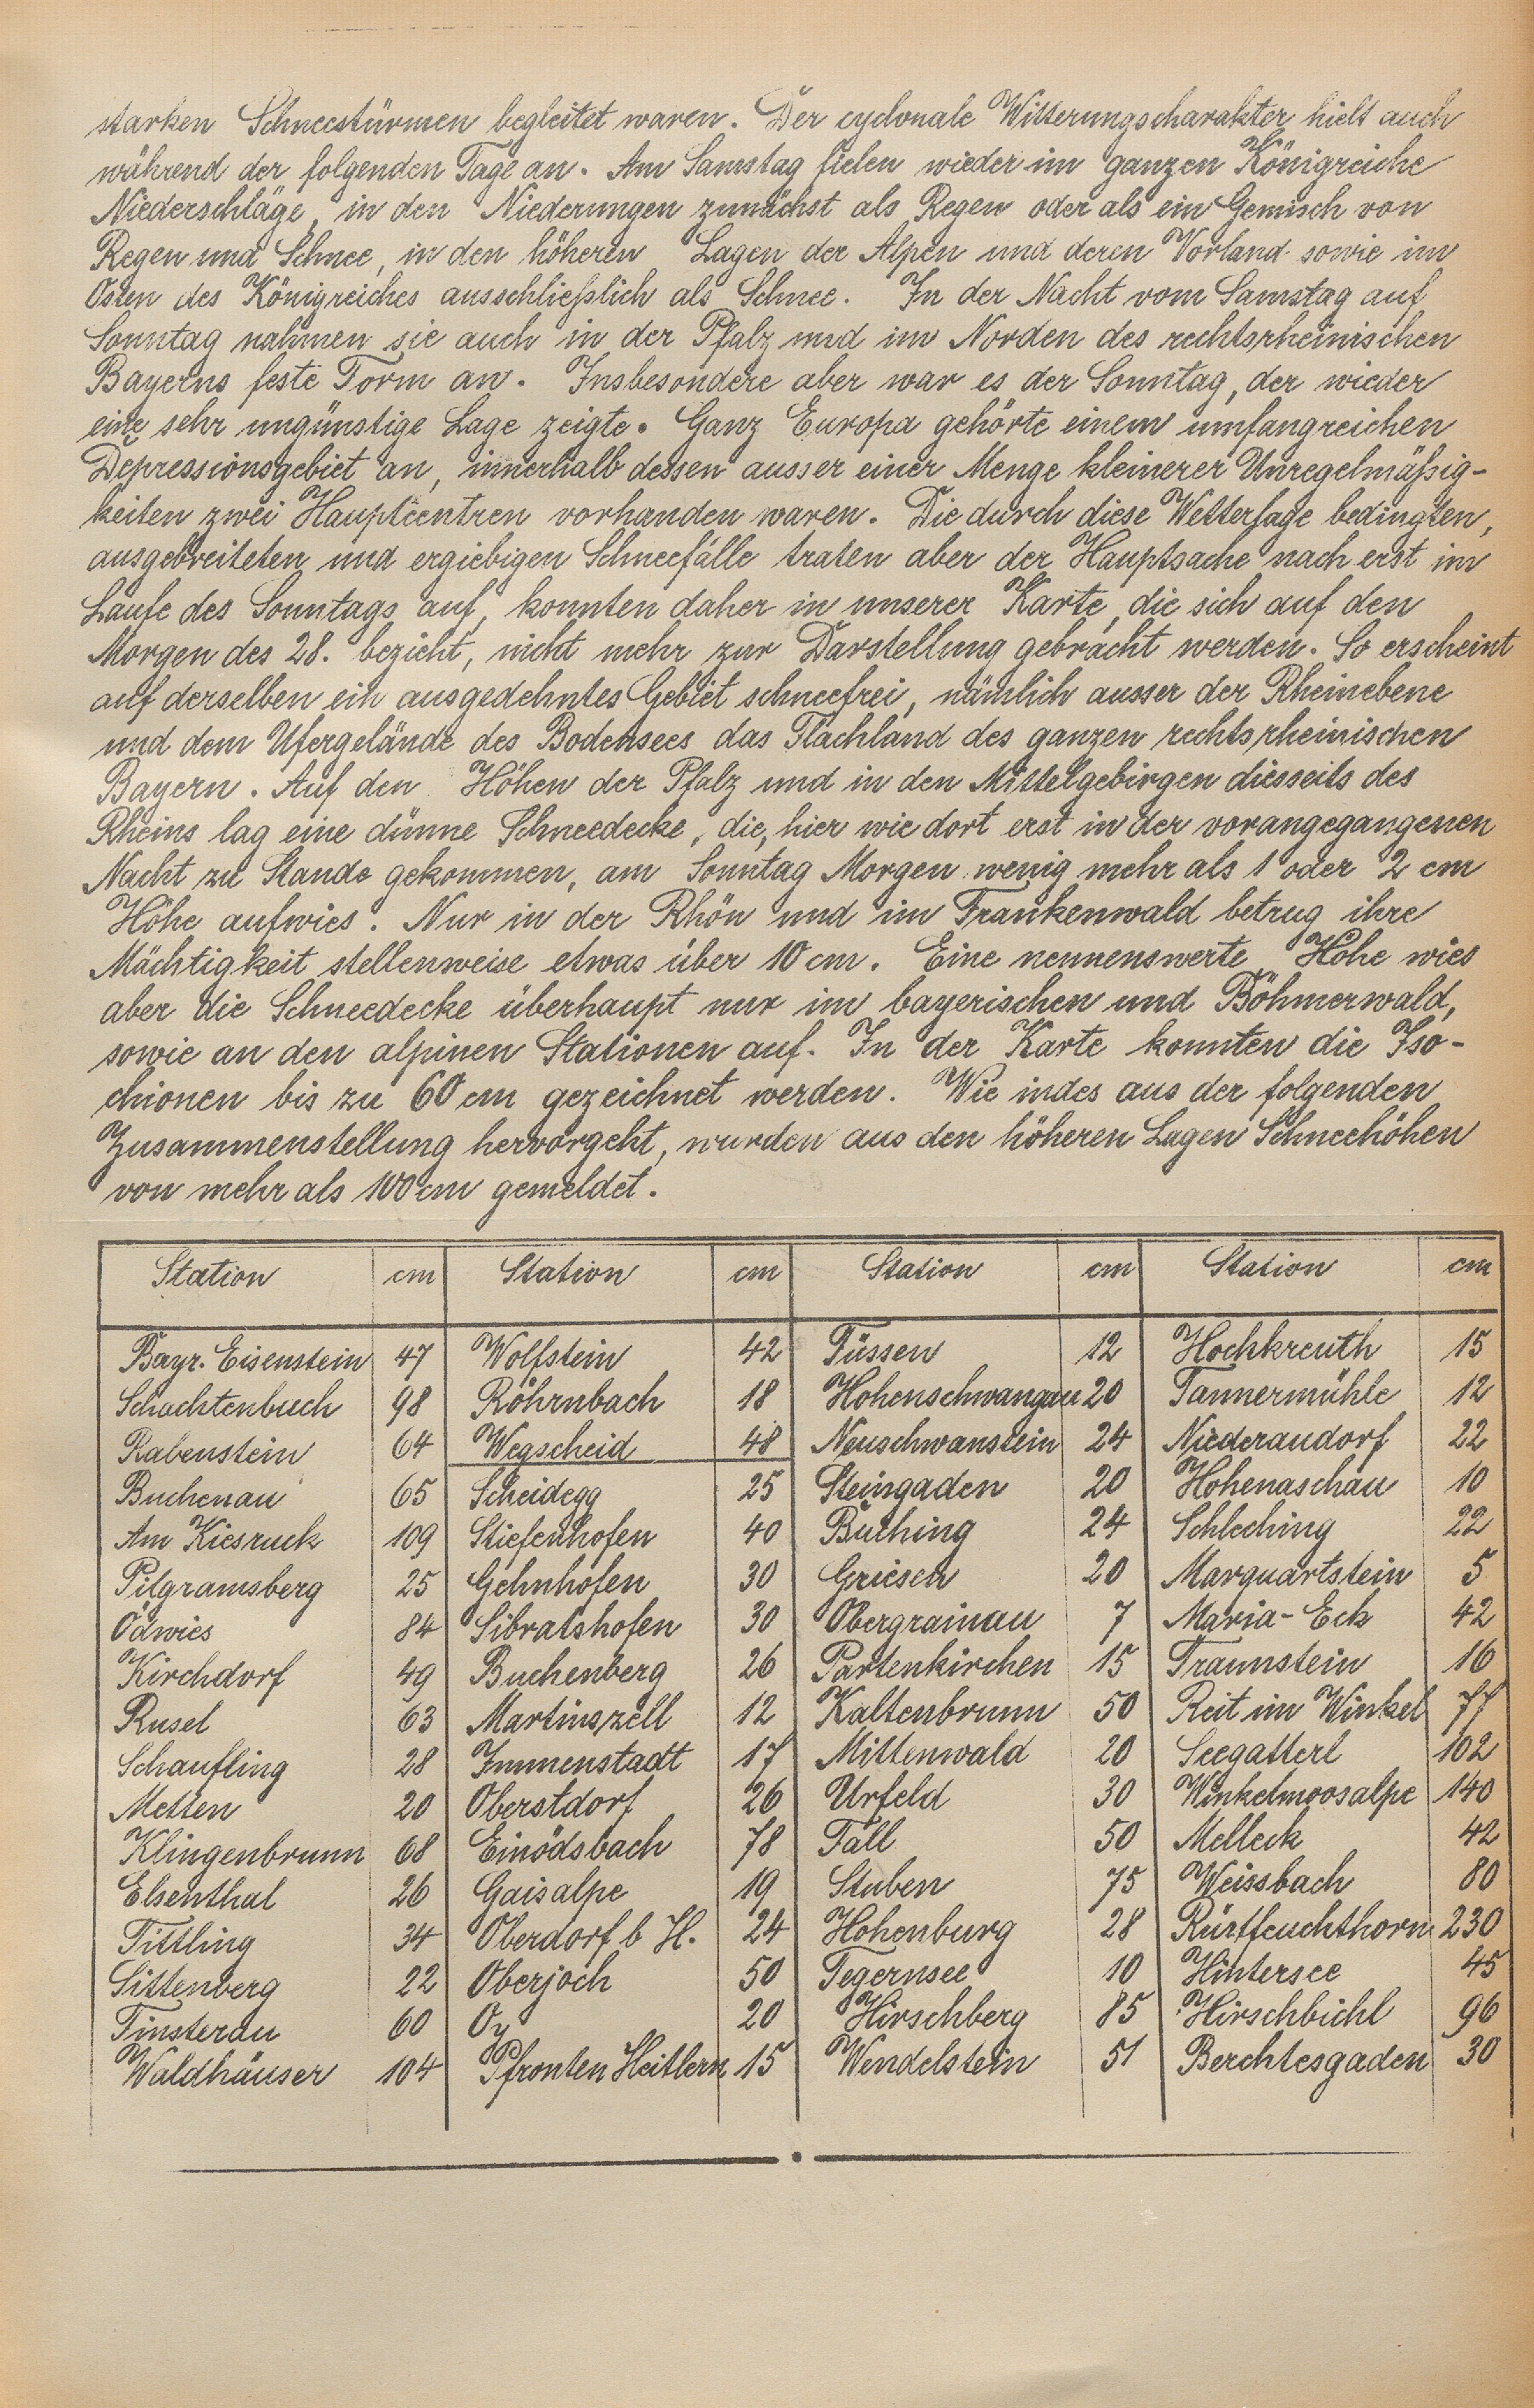 starken Schneestürmen begleitet waren. Der cyclonale Witterungscharakter hielt auch
während der folgenden Tage an. Am Samstag fielen wieder im ganzen Königreiche
Niederschläge, in den Niederungen zunächst als Regen oder als ein Gemisch von
Regen und Schnee, in den höheren Lagen der Alpen und deren Vorland sowie im
Osten des Königreiches ausschließlich als Schnee. In der Nacht vom Samstag auf
Sonntag nahmen sie auch in der Pfalz und im Norden des rechtsrheinischen
Bayerns feste Form an. Insbesondere aber war es der Sonntag, der wieder
eine sehr ungünstige Lage zeigte. Ganz Europa gehörte einem umfangreichen
Depressionsgebiet an, innerhalb dessen ausser einer Menge kleinerer Unregelmäßig-
keiten zwei Hauptcentren vorhanden waren. Die durch diese Wetterlage bedingten,
ausgebreiteten und ergiebigen Schneefälle traten aber der Hauptsache nach erst im
Laufe des Sonntags auf, konnten daher in unserer Karte, die sich auf den
Morgen des 28. bezieht, nicht mehr zur Darstellung gebracht werden. So erscheint
auf derselben ein ausgedehntes Gebiet schneefrei, nämlich ausser der Rheinebene
und dem Ufergelände des Bodensees das Flachland des ganzen rechtsrheinischen
Bayern. Auf den Höhen der Pfalz und in den Mittelgebirgen diesseits des
Rheins lag eine dünne Schneedecke, die, hier wie dort erst in der vorangegangenen
Nacht zu Stande gekommen, am Sonntag Morgen wenig mehr als 1 oder 2 cm
Höhe aufwies. Nur in der Rhön und im Frankenwald betrug ihre
Mächtigkeit stellenweise etwas über 10 cm. Eine nennenswerte Höhe wies
aber die Schneedecke überhaupt nur im bayerischen und Böhmerwald,
sowie an den alpinen Stationen auf. In der Karte konnten die Iso-
chionen bis zu 60 cm gezeichnet werden. Wie indes aus der folgenden
Zusammenstellung hervorgeht, wurden aus den höheren Lagen Schneehöhen
von mehr als 100 cm gemeldet.
Station cm Station cm Station cm Station cm
Bayr. Eisenstein 47 Wolfstein 42 Füssen 12 Hochkreuth 15
Schachtenbach 98 Röhrnbach 18 Hohenschwangau 20 Tannermühle 12
Rabenstein 64 Wegscheid 48 Neuschwanstein 24 Niederaudorf 22
Buchenau 65 Scheidegg 25 Steingaden 20 Hohenaschau 10
Am Kiesruck 109 Stiefenhofen 40 Buching 24 Schleching 22
Pilgramsberg 25 Gehnhofen 30 Griesen 20 Marquartstein 5
Ödwies 84 Sibratshofen 30 Obergrainau 7 Maria-Eck 42
Kirchdorf 49 Buchenberg 26 Partenkirchen 15 Traunstein 16
Rusel 63 Martinszell 12 Kaltenbrunn 50 Reit im Winkel 77
Schaufling 28 Immenstadt 17 Mittenwald 20 Seegatterl 102
Metten 20 Oberstdorf 26 Urfeld 30 Winkelmoosalpe 140
Klingenbrunn 68 Einödsbach 78 Fall 50 Melleck 42
Elsenthal 26 Gaisalpe 19 Stuben 75 Weissbach 80
Tittling 34 Oberdorf b H. 24 Hohenburg 28 Rürffeuchthorn 230
Sittenberg 22 Oberjoch 50 Tegernsee 10 Hintersee 45
Finsterau 60 Oy 20 Hirschberg 85 Hirschbichl 96
Waldhäuser 104 Pfronten Heitlern 15 Wendelstein 51 Berchtesgaden 30